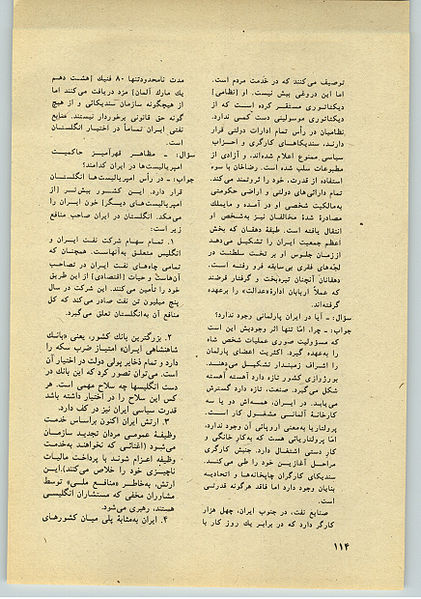 توصیف می‌کنند که در خدمت مردم است.
اما این دروغی بیش نیست. او [نظامی]
دیکتاتوری مستقر کرده است که از
دیکتاتوری موسولینی دست کمی ندارد.
نظامیان در رأس تمام ادارات دولتی قرار
دارند، سندیکاهای کارگری و احزاب
سیاسی ممنوع اعلام شده‌اند، و آزادی از
مطبوعات سلب شده است. رضاخان با سوء
استفاده از قدرت، خود را ثروتمند می‌کند.
تمام دارائی‌های دولتی و اراضی حکومتی
به‌مالکیت شخصی او در آمده و مایملک
مصادرهٔ شدهٔ مخالفان نیز به‌شخص او
انتقال یافته است. طبقهٔ دهقان که بخش
اعظم جمعیت ایران را تشکیل می‌دهد
از زمان جلوس او بر تخت سلطنت در
لجّه‌های فقری بی‌سابقه فرو رفته است.
دهقانان آنچنان تیره‌بخت و گرفتار فرضند
که عملاً اربابان ادارهٔ «عدالت» را برعهده
گرفته‌اند.
سؤال: ـ آیا در ایران پارلمانی وجود ندارد؟
جواب: ـ چرا، امّا تنها اثر وجودیش این است
که مسؤولیت صوری عملیات شخص شاه
را به‌عهده گیرد. اکثریت اعضای پارلمان
را اشراف زمیندار تشکیل می‌دهند.
بورژوازی کشور تازه دارد آهسته آهسته
شکل می‌گیرد. صنعت، تازه دارد گسترش
می‌یابد. در ایران، همه‌اش دو یا سه
کارخانهٔ آلمانی مشغول کار است.
پرولتاریا به‌معنی اروپائی آن وجود ندارد،
امّا پرولتاریائی هست که به‌کار خانگی و
کار دستی اشتغال دارد. جنبش کارگری
مراحل آغازین خود را طی می‌کند.
سندیکای کارگران چاپخانه‌ها و اتحادیهٔ
بنایان وجود دارد اما فاقد هرگونه قدرتی
است.
صنایع نفت، در جنوب ایران، چهل هزار
کارگر دارد که در برابر یك روز کار با
مدت نامحدود تنها ۸۰ فنیك [هشت دهم
یك مارك آلمان] مزد دریافت می‌کنند اما
از هیچگونه سازمان سندیکائی و از هیچ
گونه حق قانونی برخوردار نیستند. صنایع
نفتی ایران تماماً در اختیار انگلستان
است.
سؤال: ـ مظاهر قهرآمیز حاکمیت
امپریالیست‌ها در ایران کدامند؟
جواب: ـ در رأس امپریالیست‌ها انگلستان
قرار دارد. این کشور بیش‌تر [از
امپریالیست‌های دیگر] خون ایران را
می‌مکد. انگلستان در ایران صاحب منافع
زیر است:
۱. تمام سهام شرکت نفت ایران و
انگلیس متعلق به‌آنهاست. همچنان که
تمامی چاه‌های نفت ایران در تصاحب
آن‌هاست و حیات [اقتصادی] از این طریق
خود را تأمین می‌کنند. این شرکت در سال
پنج میلیون تن نفت صادر می‌کند که کل
منافع آن به‌انگلستان تعلق می‌گیرد.
۲. بزرگترین بانك کشور، یعنی «بانك
شاهنشاهی ایران» امتیاز ضرب سکه را
دارد و تمام ذخایر پولی دولت در اختیار آن
است. می‌توان تصور کرد که این بانك در
دست انگلیسها چه سلاح مهمی است. هر
کس این سلاح را در اختیار داشته باشد
قدرت سیاسی ایران نیز در کف دارد.
۳. ارتش ایران اکنون براساس خدمت
وظیفهٔ عمومی مردان تجدید سازمان
می‌شود (اغنیائی که نخواهند به‌خدمت
وظیفه اعزام شوند با پرداخت مالیات
ناچیزی خود را خلاص می‌کنند). این
ارتش، به‌خاطر «منافع ملی» توسط
مشاوران مخفی که مستشاران انگلیسی
هستند، رهبری می‌شود.
۴. ایران به‌مثابهٔ پلی میان کشورهای
۱۱۴